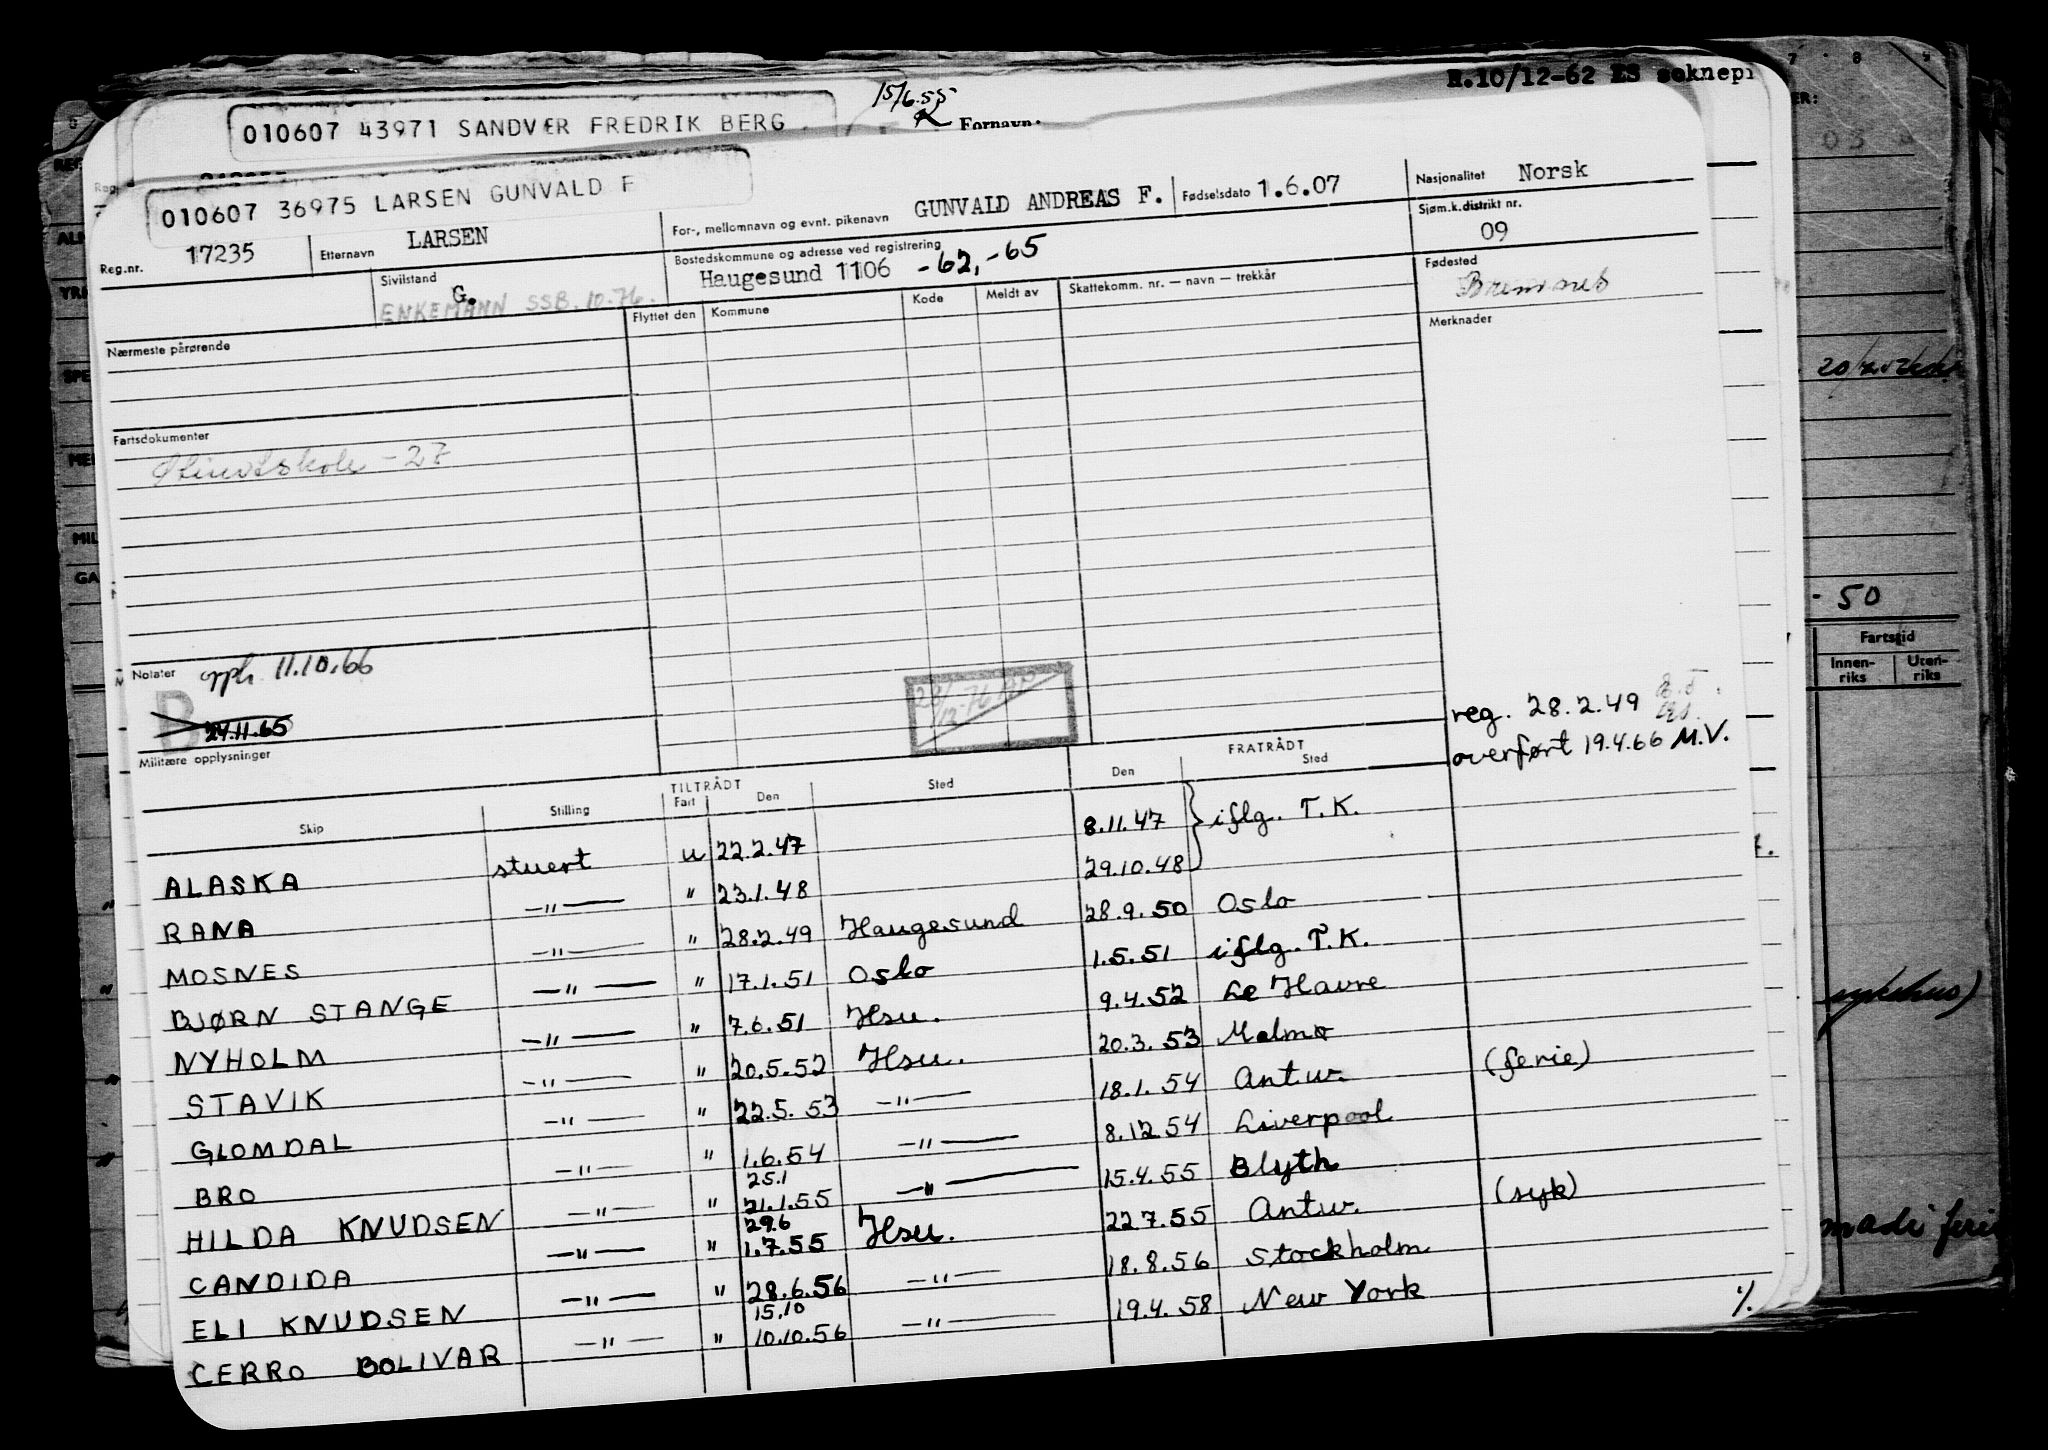 R.10/12-62 ES søknepr
15/6.55
Fornavn:
010607 43971 SANDVÆR FREDRIK BERG
010607 36975 LARSEN GUNVALD F
Reg.nr. 17235
Etternavn LARSEN
For-, mellomnavn og evnt. pikenavn GUNVALD ANDREAS F.
Fødselsdato 1.6.07
Nasjonalitet Norsk
Sivilstand G.
ENKEMANN SSB. 10-76.
Bostedskommune og adresse ved registrering
Haugesund 1106 -62, -65
Sjøm.k.distrikt nr.
09
Nærmeste pårørende
Flyttet den Kommune Kode Meldt av Skattekomm. nr. — navn — trekkår
Fødested
Bremnes
Merknader
Fartsdokumenter
- 27
Notater opph. 11.10.66
B 24.11.65
28/12-76
Militære opplysninger
reg. 28.2.49
overført 19.4.66 M.V.
TILTRÅDT FRATRÅDT
Skip Stilling Fart Den Sted Den Sted
ALASKA stuert u 22.2.47 8.11.47 } iflg. T.K.
RANA —"— " 23.1.48 29.10.48
MOSNES —"— " 28.2.49 Haugesund 28.9.50 Oslo
BJØRN STANGE —"— " 17.1.51 Oslo 1.5.51 iflg. T.K.
NYHOLM —"— " 7.6.51 Hsu. 9.4.52 Le Havre
STAVIK —"— " 20.5.52 Hsu. 20.3.53 Malmø
GLOMDAL —"— " 22.5.53 —"— 18.1.54 Antw. (ferie)
BRO —"— " 1.6.54 —"— 8.12.54 Liverpool
25.1
HILDA KNUDSEN —"— " 21.1.55 —"— 15.4.55 Blyth
29.6
CANDIDA —"— " 1.7.55 Hsu. 22.7.55 Antw. (syk)
ELI KNUDSEN —"— " 28.6.56 —"— 18.8.56 Stockholm
15.10
CERRO BOLIVAR —"— " 10.10.56 —"— 19.4.58 New York
%
- 50
Fartstid
Innen-riks Uten-riks
sykehus)